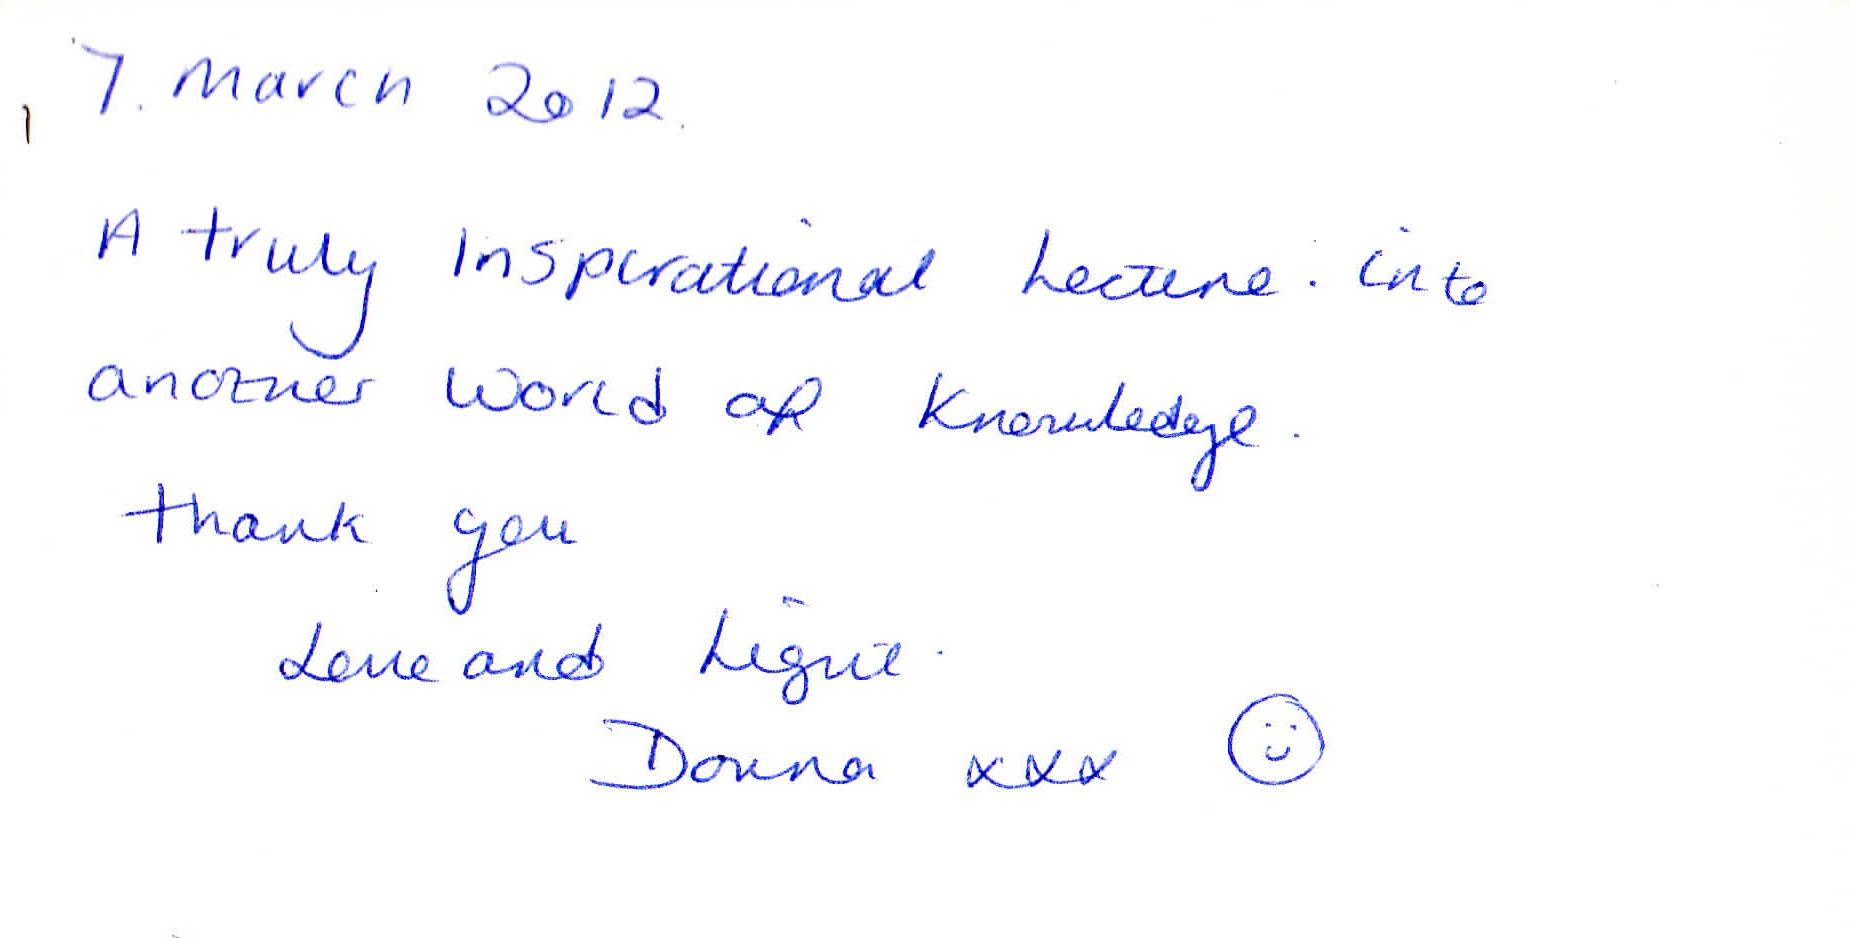 7. March 2012.
A truly Inspirational Lecture. into
another World of Knowledge.
thank you
Love and Light.
Donna xxx